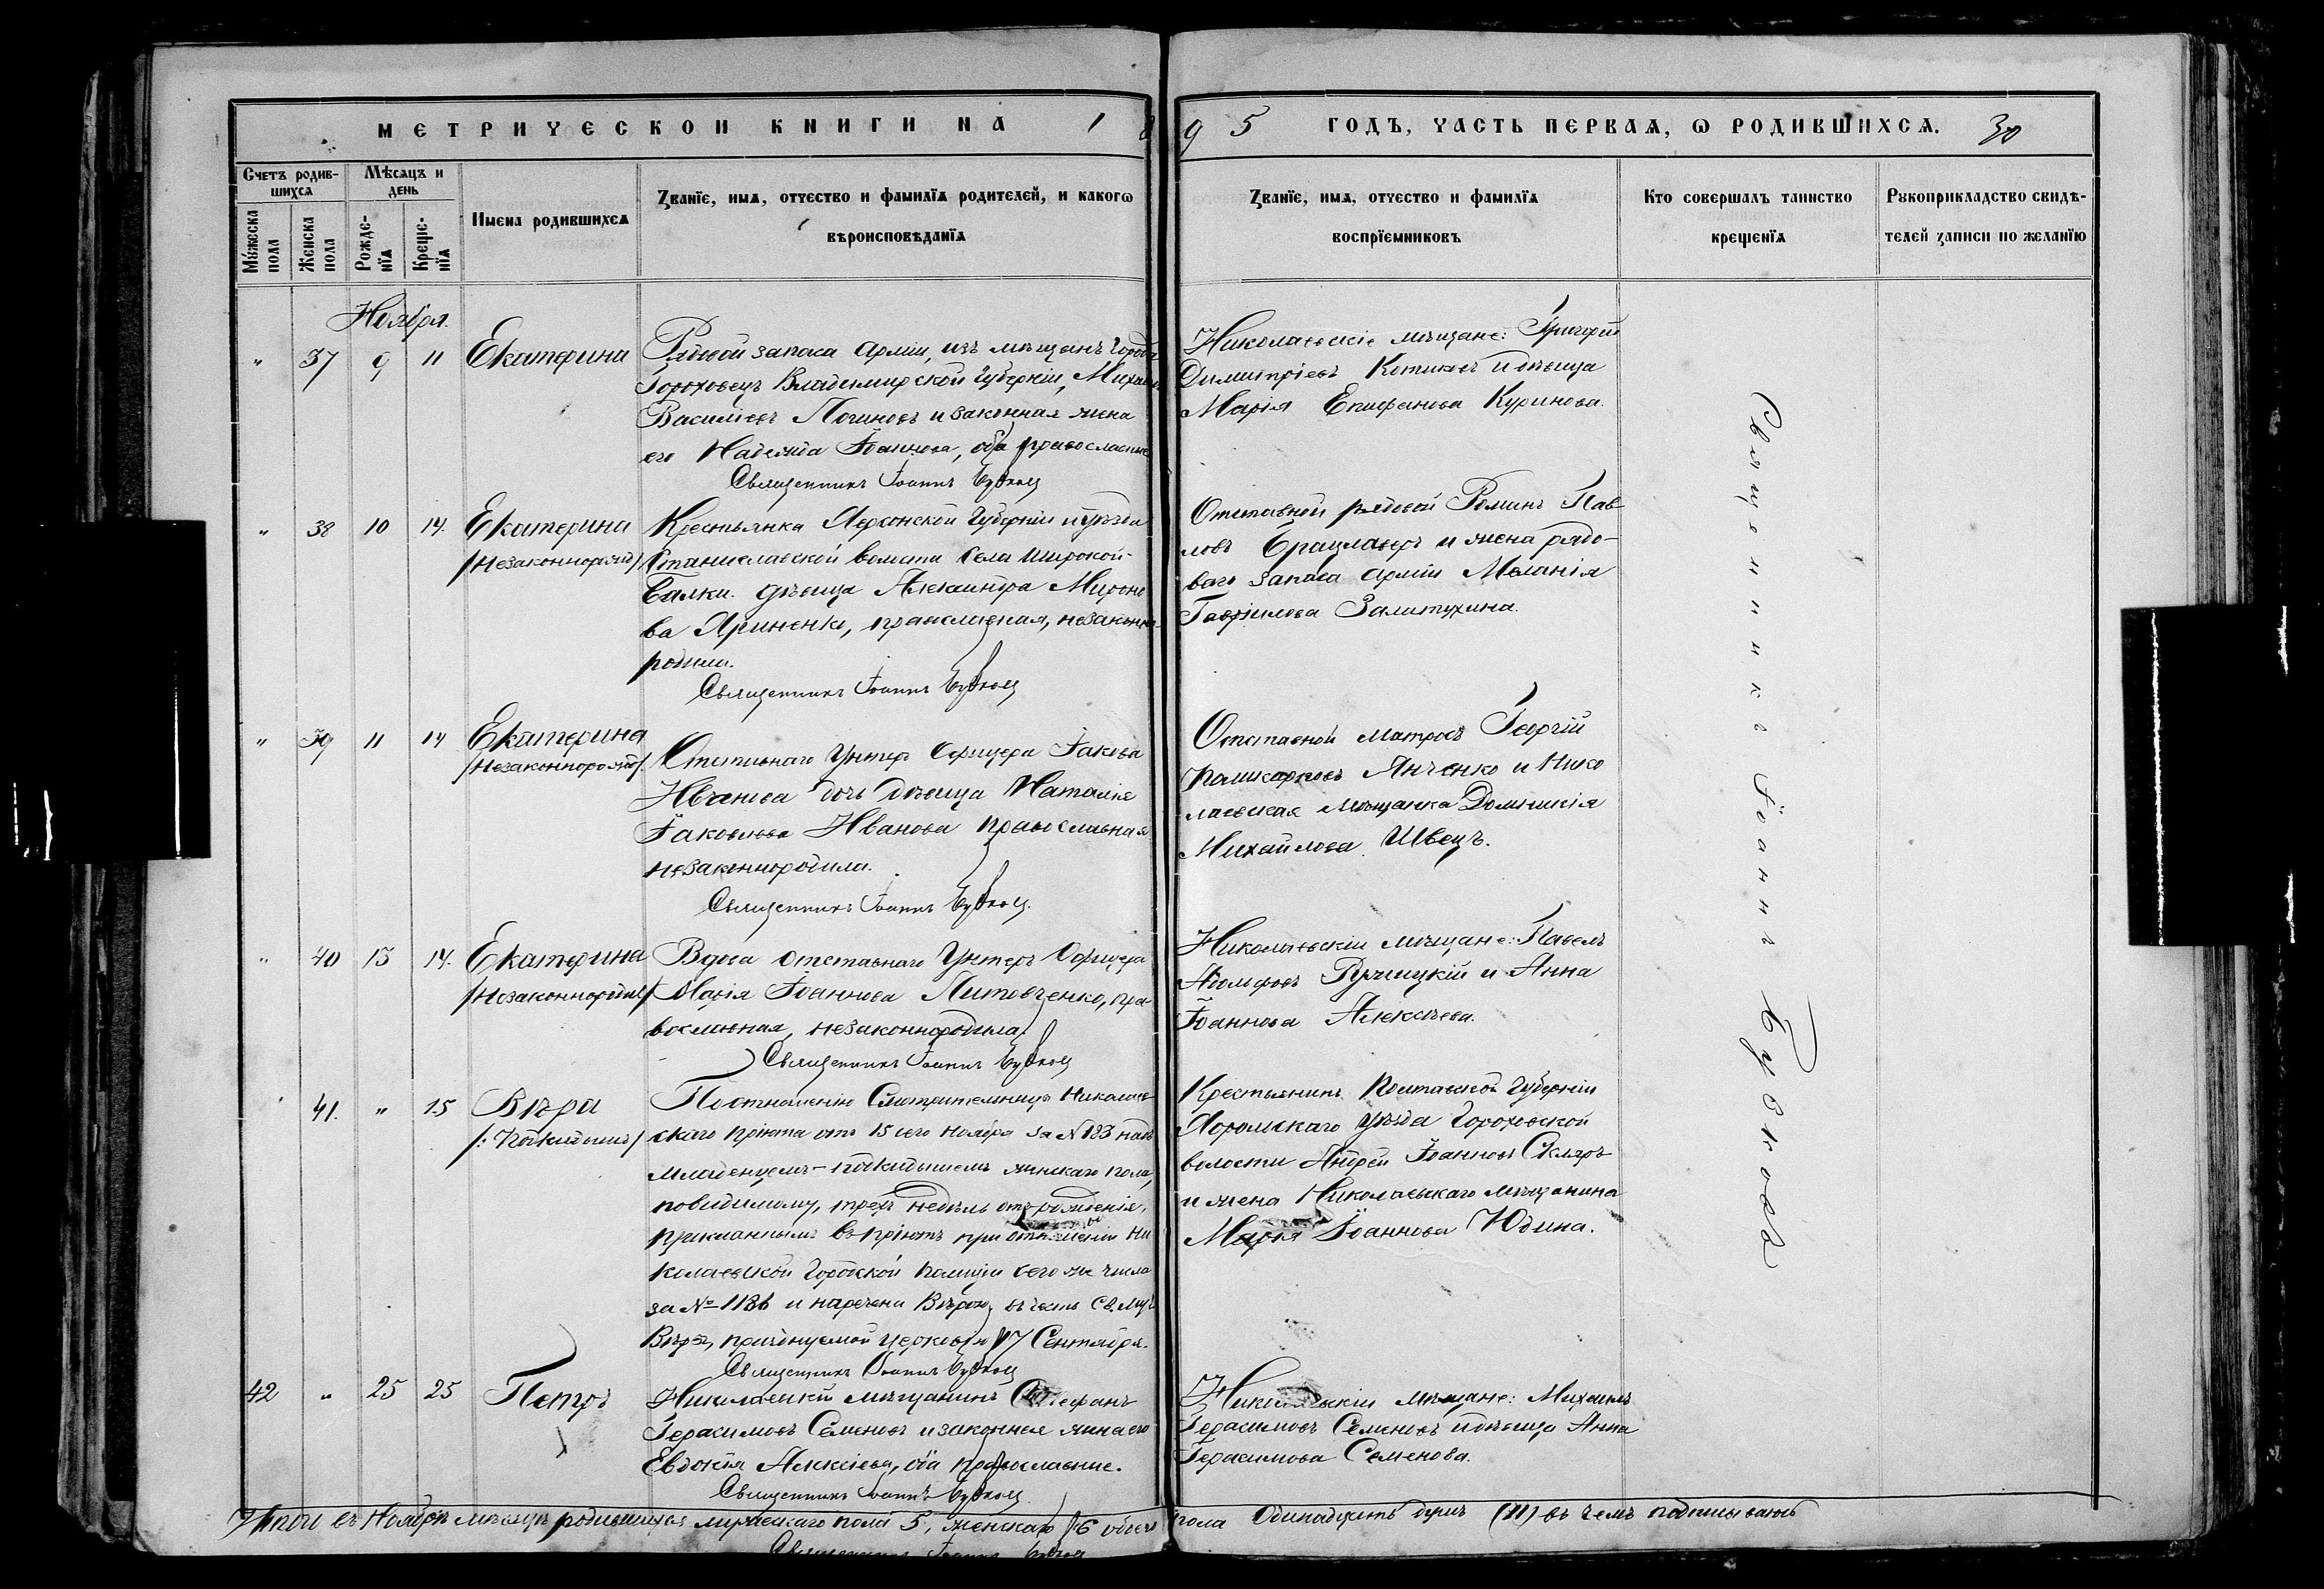 МЕТРИЧЕСКОЙ КНИГИ НА 1895 ГОДЪ, ЧАСТЬ ПЕРВАЯ, Ѡ РОДИВШИХСЯ. 30
Счетъ родив-
шихся
Мужеска
пола
Женска
пола
Мѣсяцъ и
день
Рожде-
нїя
Креще-
нїя
Имена родившихся
Званїе, имя, отчество и фамилїя родителей, и какогѡ
вѣроисповѣданїя
Званїе, имя, отчество и фамилїя
воспрїемниковъ
Кто совершалъ таинство
крещенїя
Рукоприкладство свидѣ-
телей записи по желанїю
Ноября.
" 37 9 11 Екатерина
Рядовой запаса арміи, изъ мѣщанъ города
Гороховецъ Владимирской губерніи, Михаилъ
Василіевъ Логиновъ и законная жена
его Надежда Іоаннова, оба православные
Священникъ Іоаннъ
Николаевскіе мѣщане: Григорій
Димитріевъ Котиковъ и дѣвица
Марія Епифанова Куринова.
" 38 10 14. Екатерина
/Незаконнорожд/
Крестьянка Херсонской губерніи и уѣзда
Станиславской волости села Широкой-
Балки. дѣвица Александра Мироно
ва Яриненко, православная, незаконно-
родила.
Священникъ Іоаннъ
Отставной рядовой Романъ Пав
ловъ Брацлаверъ и жена рядо-
ваго запаса арміи Меланія
Гавріилова Залитухина.
" 39 11 14 Екатерина
/Незаконнорожд/.
Отставнаго Унтеръ Офицера Іакова
Иванова дочь дѣвица Наталія
Іаковлева Иванова православная
незаконнородила.
Священникъ Іоаннъ
Отставной матросъ Георгій
Поликарповъ Янченко и Нико
лаевская мѣщанка Домникія
Михайлова Швецъ.
" 40 13 14. Екатерина
/Незаконнорожд/
Вдова отставнаго Унтеръ Офицера
Марія Іоаннова Литовченко, пра-
вославная, незаконнородила.
Священникъ Іоаннъ
Николаевскіи мѣщане: Павелъ
Адольфовъ и Анна
Іоаннова Алексѣева.
" 41. " 15 Вѣра
/: Подкидышъ/
По отношенію Смотрительницы Николаев
скаго пріюта отъ 15 сего ноября за № 183 надъ
младенцемъ-подкидышемъ женскаго пола,
повидимому, трехъ недѣль отъ рожденія,
присланнымъ въ пріютъ при отношеніи Ни
колаевской городской полиціи сего же числа
за № 1186 и наречена Вѣрою, въ честь Св. муч.
Вѣры, празднуемой церковью 17 Сентября.
Священникъ Іоаннъ
Крестьянинъ Полтавской губерніи
Хорольскаго уѣзда Гороховской
волости Андрей Іоанновъ Скляръ
и жена Николаевскаго мѣщанина
Марія Іоаннова Юдина.
42 " 25 25 Петръ
Николаевскій мѣщанинъ Стефанъ
Герасимовъ Семеновъ и законная жена его
Евдокія Алексіева, оба православные.
Священникъ Іоаннъ
Николаевскіи мѣщане: Михаилъ
Герасимовъ Семеновъ и дѣвица Анна
Герасимова Семенова.
Священникъ Іоаннъ
Итого въ Ноябрѣ мѣсяцѣ родившихся мужескаго пола 5, женскаго 6 обоего пола Одинадцать душъ (11) въ чемъ подписываюсь
Священникъ Іоаннъ